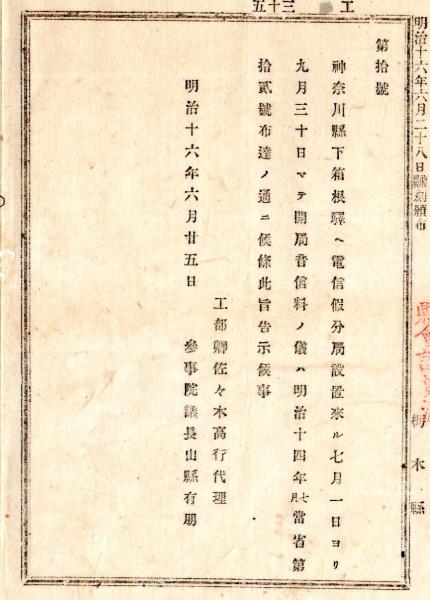 明治十六年六月二十八日翻刻頒布
栃木縣
工 三十五
第拾號
神奈川縣下箱根驛ヘ電信假分局設置來ル七月一日ヨリ
九月三十日マテ開局音信料ノ儀ハ明治十四年七月當省第
拾貳號布達ノ通ニ候條此旨告示候事
明治十六年六月廿五日
工部卿佐々木高行代理
參事院議長山縣有朋